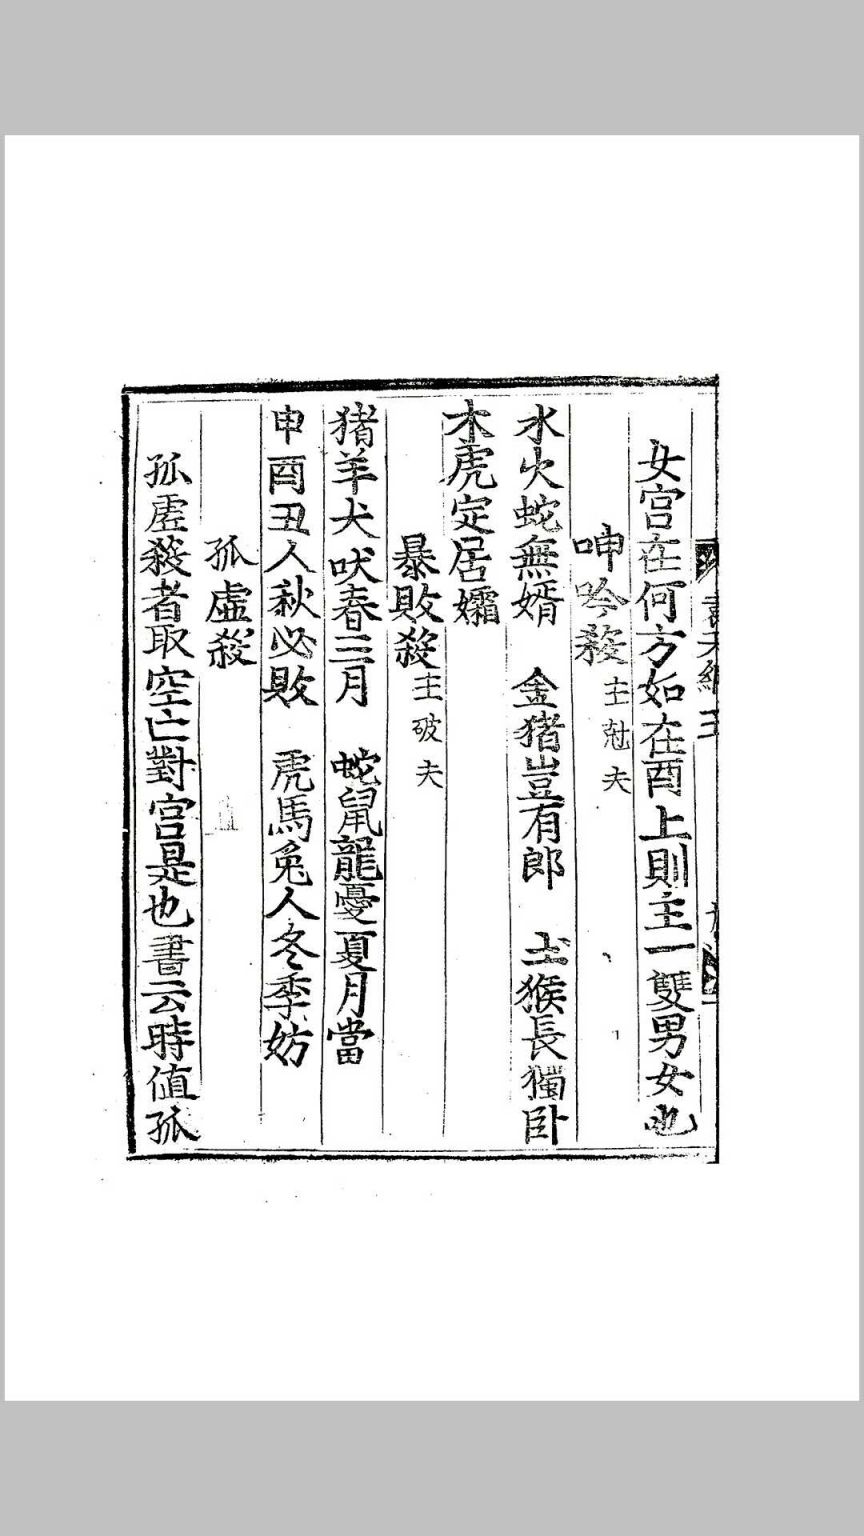 女宮在何方如在酉上則主一雙男女也
呻吟殺 主尅夫
水火蛇無婿 金猪豈有郎 土猴長獨卧
木虎定居孀
暴敗殺 主破夫
猪羊犬吠春三月 蛇鼠龍憂夏月當
申酉丑人秋必敗 虎馬兔人冬季妨
孤虛殺
孤虛殺者取空亡對宮是也書云時值孤